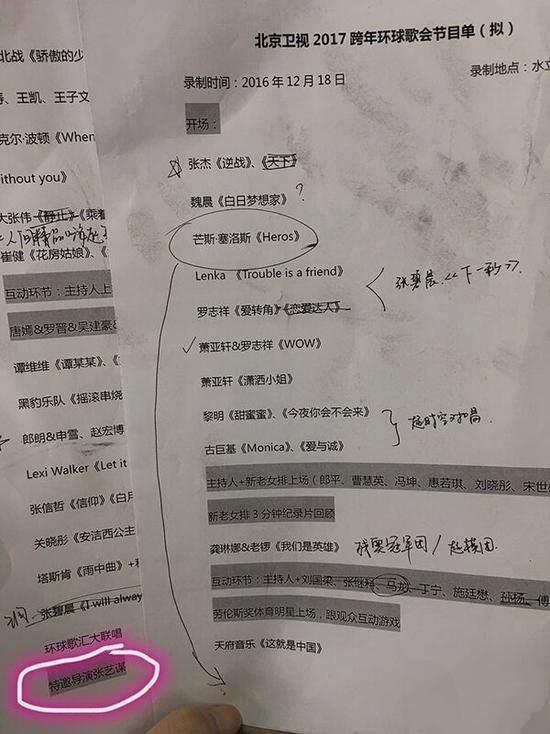 北京卫视 2017 跨年环球歌会节目单（拟）
录制时间：2016 年 12 月 18 日
录制地点：水立
开场：
张杰《逆战》、《天下》
魏晨《白日梦想家》?
芒斯·塞洛斯《Heros》
Lenka 《Trouble is a friend》
张碧晨《下一秒》
罗志祥《爱转角》《恋爱达人》
✓萧亚轩&罗志祥《WOW》
萧亚轩《潇洒小姐》
黎明《甜蜜蜜》、《今夜你会不会来》
超时空对唱
古巨基《Monica》、《爱与诚》
主持人+新老女排上场（郎平、曹慧英、冯坤、惠若琪、刘晓彤、宋世
新老女排 3 分钟纪录片回顾
龚琳娜&老锣《我们是英雄》 残奥冠军团/
互动环节：主持人+刘国梁、张继科、马龙、丁宁、施廷懋、孙杨、傅
劳伦斯奖体育明星上场，跟观众互动游戏
天府音乐《这就是中国》
北战《骄傲的少
、王凯、王子文
克尔·波顿《When
ithout you》
大张伟《静止》《乘着
崔健《花房姑娘》、
互动环节：主持人上
唐嫣&罗晋&吴建豪&
谭维维《谭某某》、
黑豹乐队《摇滚串烧
郎朗&申雪、赵宏博
Lexi Walker《Let it
张信哲《信仰》《白月
关晓彤《安洁西公主
塔斯肯《雨中曲》+
张碧晨《I will alway
环球歌汇大联唱
特邀导演张艺谋